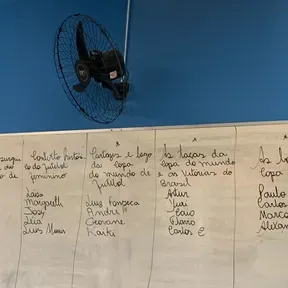 do
o de
Contexto histó
co do futebol
feminino
Laís
Margareth
José
Léia
Luis
Cartazes e logo
da copa
do mundo de
futebol
Luis Fonseca
André
Geovane
Kaiki
As taças da
Copa do mundo
e as vitórias do
Brasil
Artur
Yuri
Caio
Flavio
Carlos E
As
Copa
Paulo
Carlos
Marco
Alexan